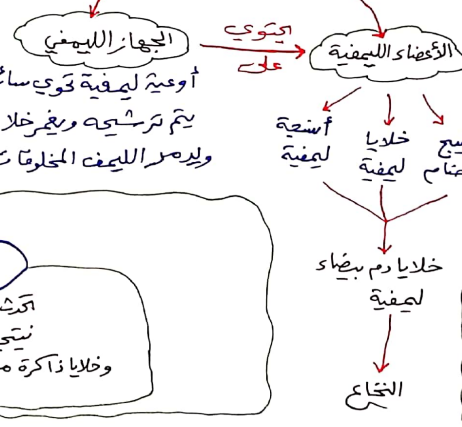 الجهاز الليمفي
يحتوي
على
الأعضاء الليمفية
أوعية ليمفية تحوي سائ
يتم ترشيحه ويغمر خلا
ويدمر الليمف المخلوقات
أنسجة
ليمفية
خلايا
ليمفية
خلايا دم بيضاء
ليمفية
النخاع
نتيج
وخلايا ذاكرة م